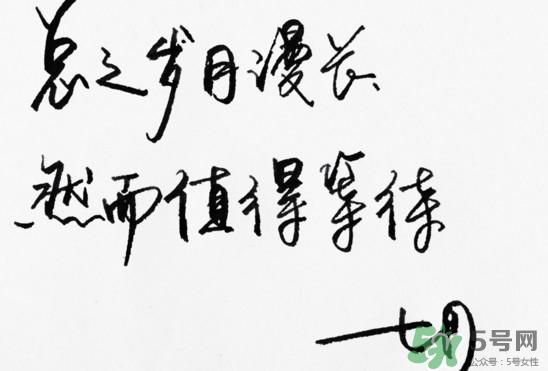 总之岁月漫长
然而值得等待
5号网
公众号：5号女性